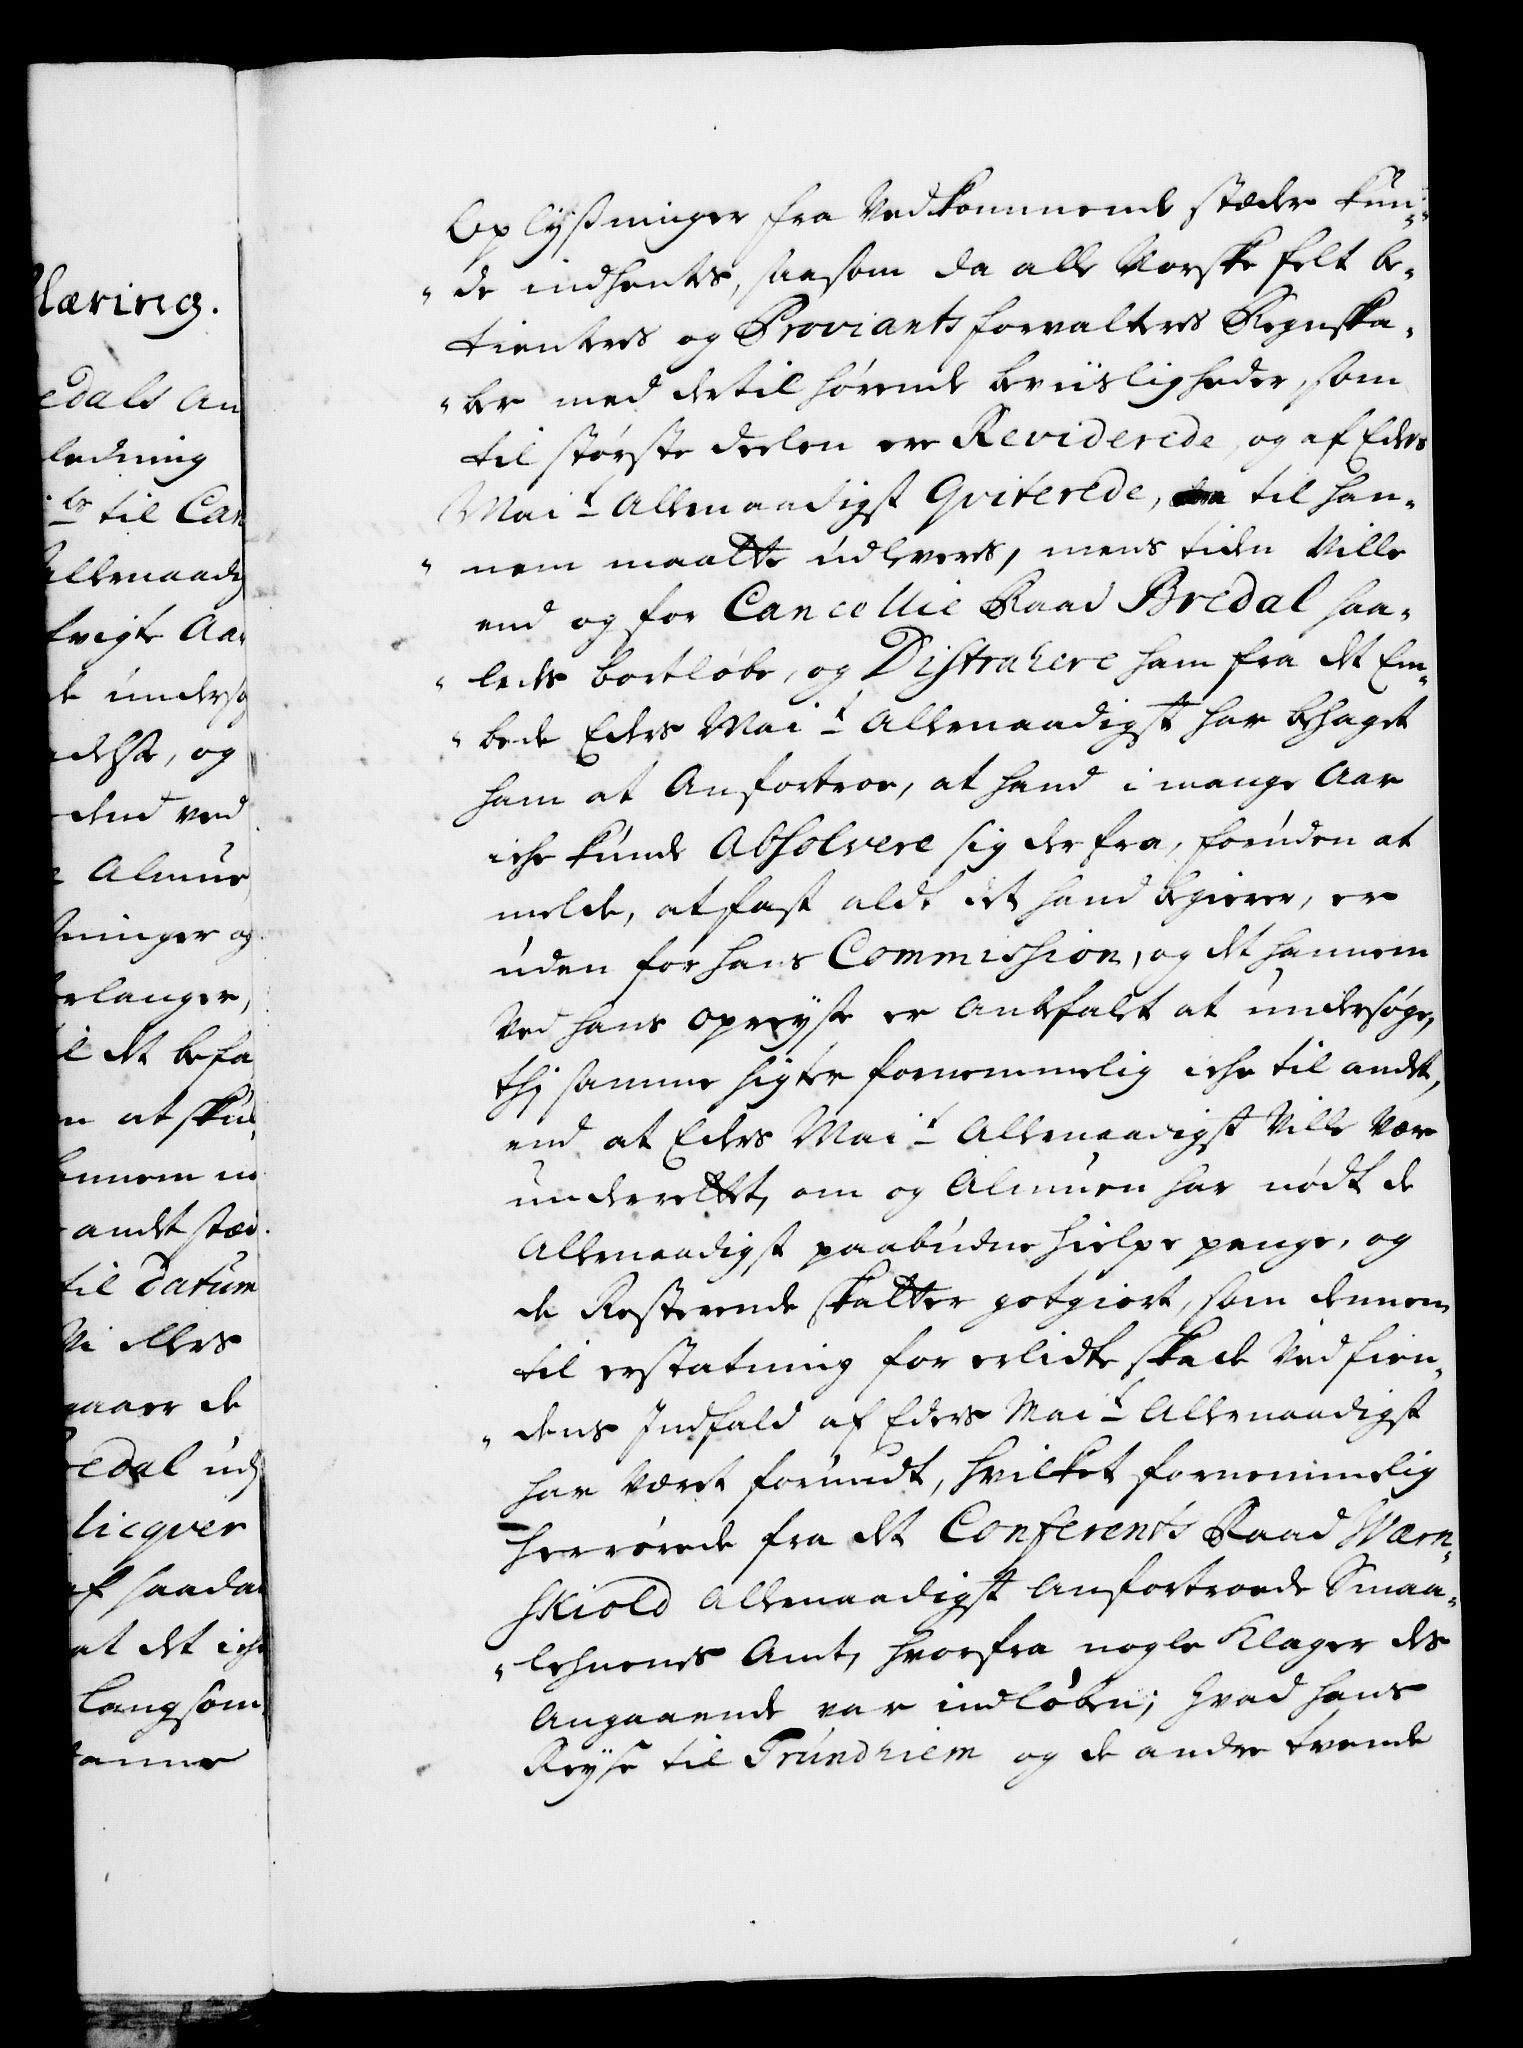 læring.
edals An
ledning
ts til Can
Allernaadig
fvigte Aa-
de undersø
edste, og
dend ved
Almue
ninger og
erlanger,
il det befa
n at skul-
hannem in
andet stæd.
til datum
Vi ellers
gaaer de
edal uds
licqver
af saadan
at det iche
langsom
danne
Oplysninger fra Vedkommende stæder kun-
"de indhentes, saasom da alle Norske felt be-
tienters og Proviants forvalters Regnska-
"ber med dertil hørende beviisligheder, som
til største deelen ere Reviderede, og af Eders
Mait Allernaadigst Qviterede, til han-
"nem maatte udleveres, mens tiden Ville
end og for Cancellie Raad Bredal saa-
"ledes bortløbe, og Distrahere ham fra det Em-
"bede Eders Mait Allernaadigst har behaget
ham at Anfortroe, at hand i mange Aar
iche kunde Absolvere sig der fra, foruden at
melde, at fast aldt det hand begierer, er
uden for hans Commission, og det hannem
Ved hans opreyse er Anbefalet at undersøge,
thj samme sigter fornemmelig iche til andet,
end at Eders Mait Allernaadigst Ville Vær
underrettet, om og Almuen har nødt de
Allernaadigst paabudne hielpe penge, og
de Resterende skatter gotgiort, som dennem
til erstatning for erlidte skade Ved fien-
"dens Indfald af Eders Mait Allernaadigst
har Været forundt, hvilket fornemmelig
herrørede fra det Conferents Raad Wærn-
skiold Allernaadigst Anfortroede Smaa-
"lehnenes Amt, hvorfra nogle Klager des
Angaaende var indløben; hvad hans
Reyse til Trundhiem og de andre tvende